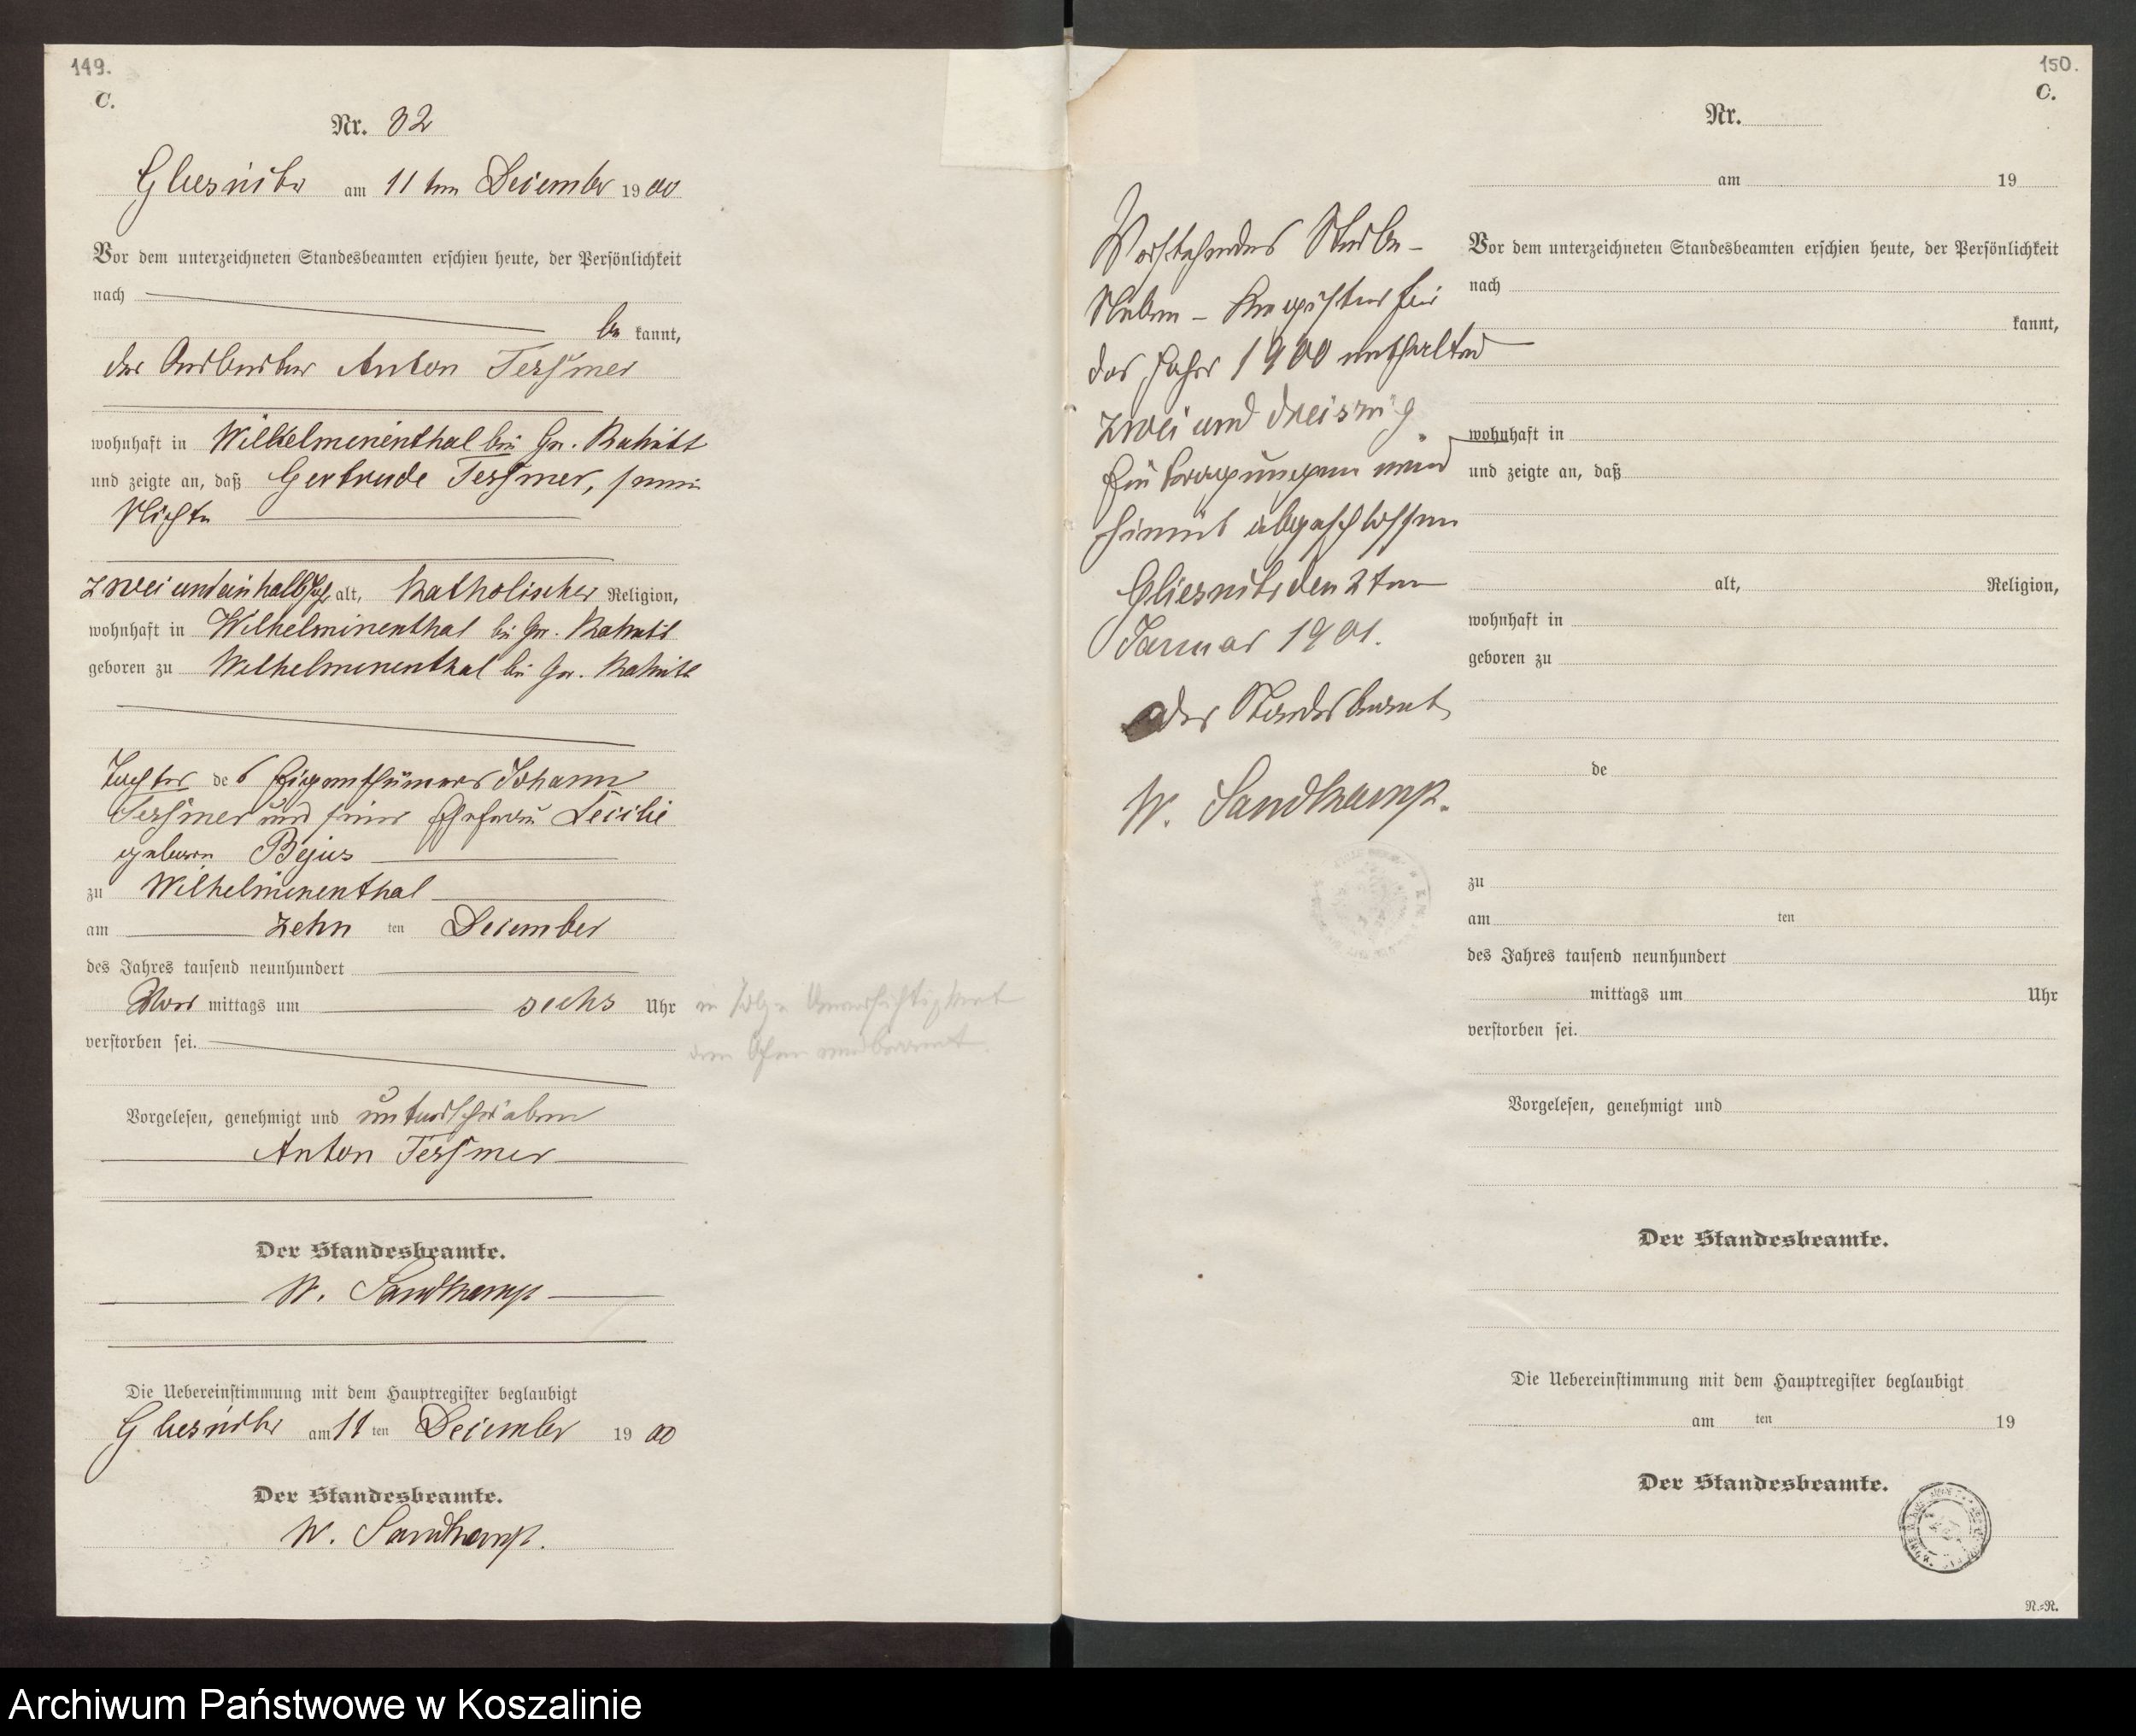 149.
C.
Nr. 32
Gliesnitz am 11ten Dezember 1900
Vor dem unterzeichneten Standesbeamten erschien heute, der Persönlichkeit
nach
be kannt,
der Anton Tessmer
wohnhaft in Wilhelminenthal bei Gr. Rakitt
und zeigte an, daß Gertrude Tessmer, seine
Nichte
zwei undeinhalb Jahr alt, Katholischer Religion,
wohnhaft in Wilhelminenthal bei Gr. Rakitt
geboren zu Wilhelminenthal bei Gr. Rakitt
Tochter des Eigenthümers Johann
Tessmer und seiner Ehefrau Cecilie
geboren Bejus
zu Wilhelminenthal
am zehn ten Dezember
des Jahres tausend neunhundert
Vor mittags um sechs Uhr
verstorben sei.
in Folge Unvorsichtigkeit
Vorgelesen, genehmigt und unterschrieben
Anton Tessmer
Der Standesbeamte.
W. Sandkamp
Die Uebereinstimmung mit dem Hauptregister beglaubigt
Gliesnitz am 11 ten Dezember 1900
Der Standesbeamte.
W. Sandkamp.
150.
C.
Vorstehendes Sterbe-
Neben-Register für
das Jahr 1900 enthaltend
zwei und dreiszig
Eintragungen wird
hiermit abgeschlossen
Gliesnitz den 2ten
Januar 1901.
der Standesbeamte
W. Sandkamp.
Nr.
am 19
Vor dem unterzeichneten Standesbeamten erschien heute, der Persönlichkeit
nach
kannt,
wohnhaft in
und zeigte an, daß
alt, Religion,
wohnhaft in
geboren zu
de
zu
am ten
des Jahres tausend neunhundert
mittags um Uhr
verstorben sei.
Vorgelesen, genehmigt und
Der Standesbeamte.
Die Uebereinstimmung mit dem Hauptregister beglaubigt
am ten 19
Der Standesbeamte.
N.-R.
Archiwum Państwowe w Koszalinie